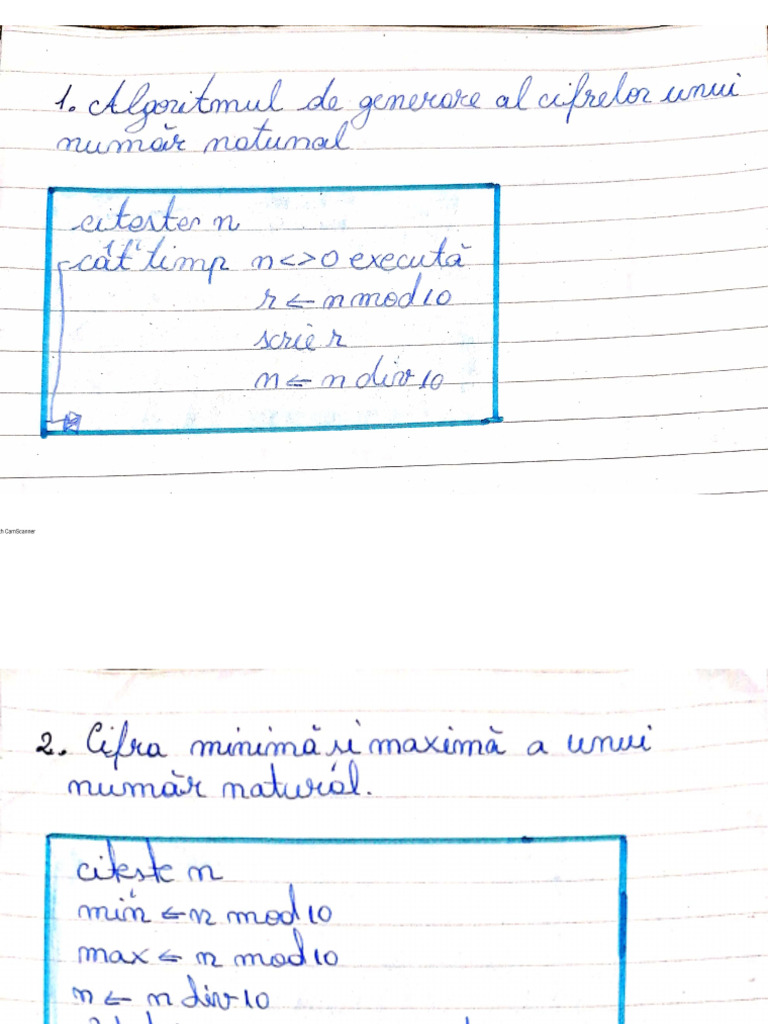 1. Algoritmul de generare al cifrelor unui
număr natural
citește n
cât timp n<>0 execută
r ← n mod 10
scrie r
n ← n div 10
h CamScanner
2. Cifra minimă și maximă a unui
număr natural.
citește n
min ← n mod 10
max ← n mod 10
n ← n div 10